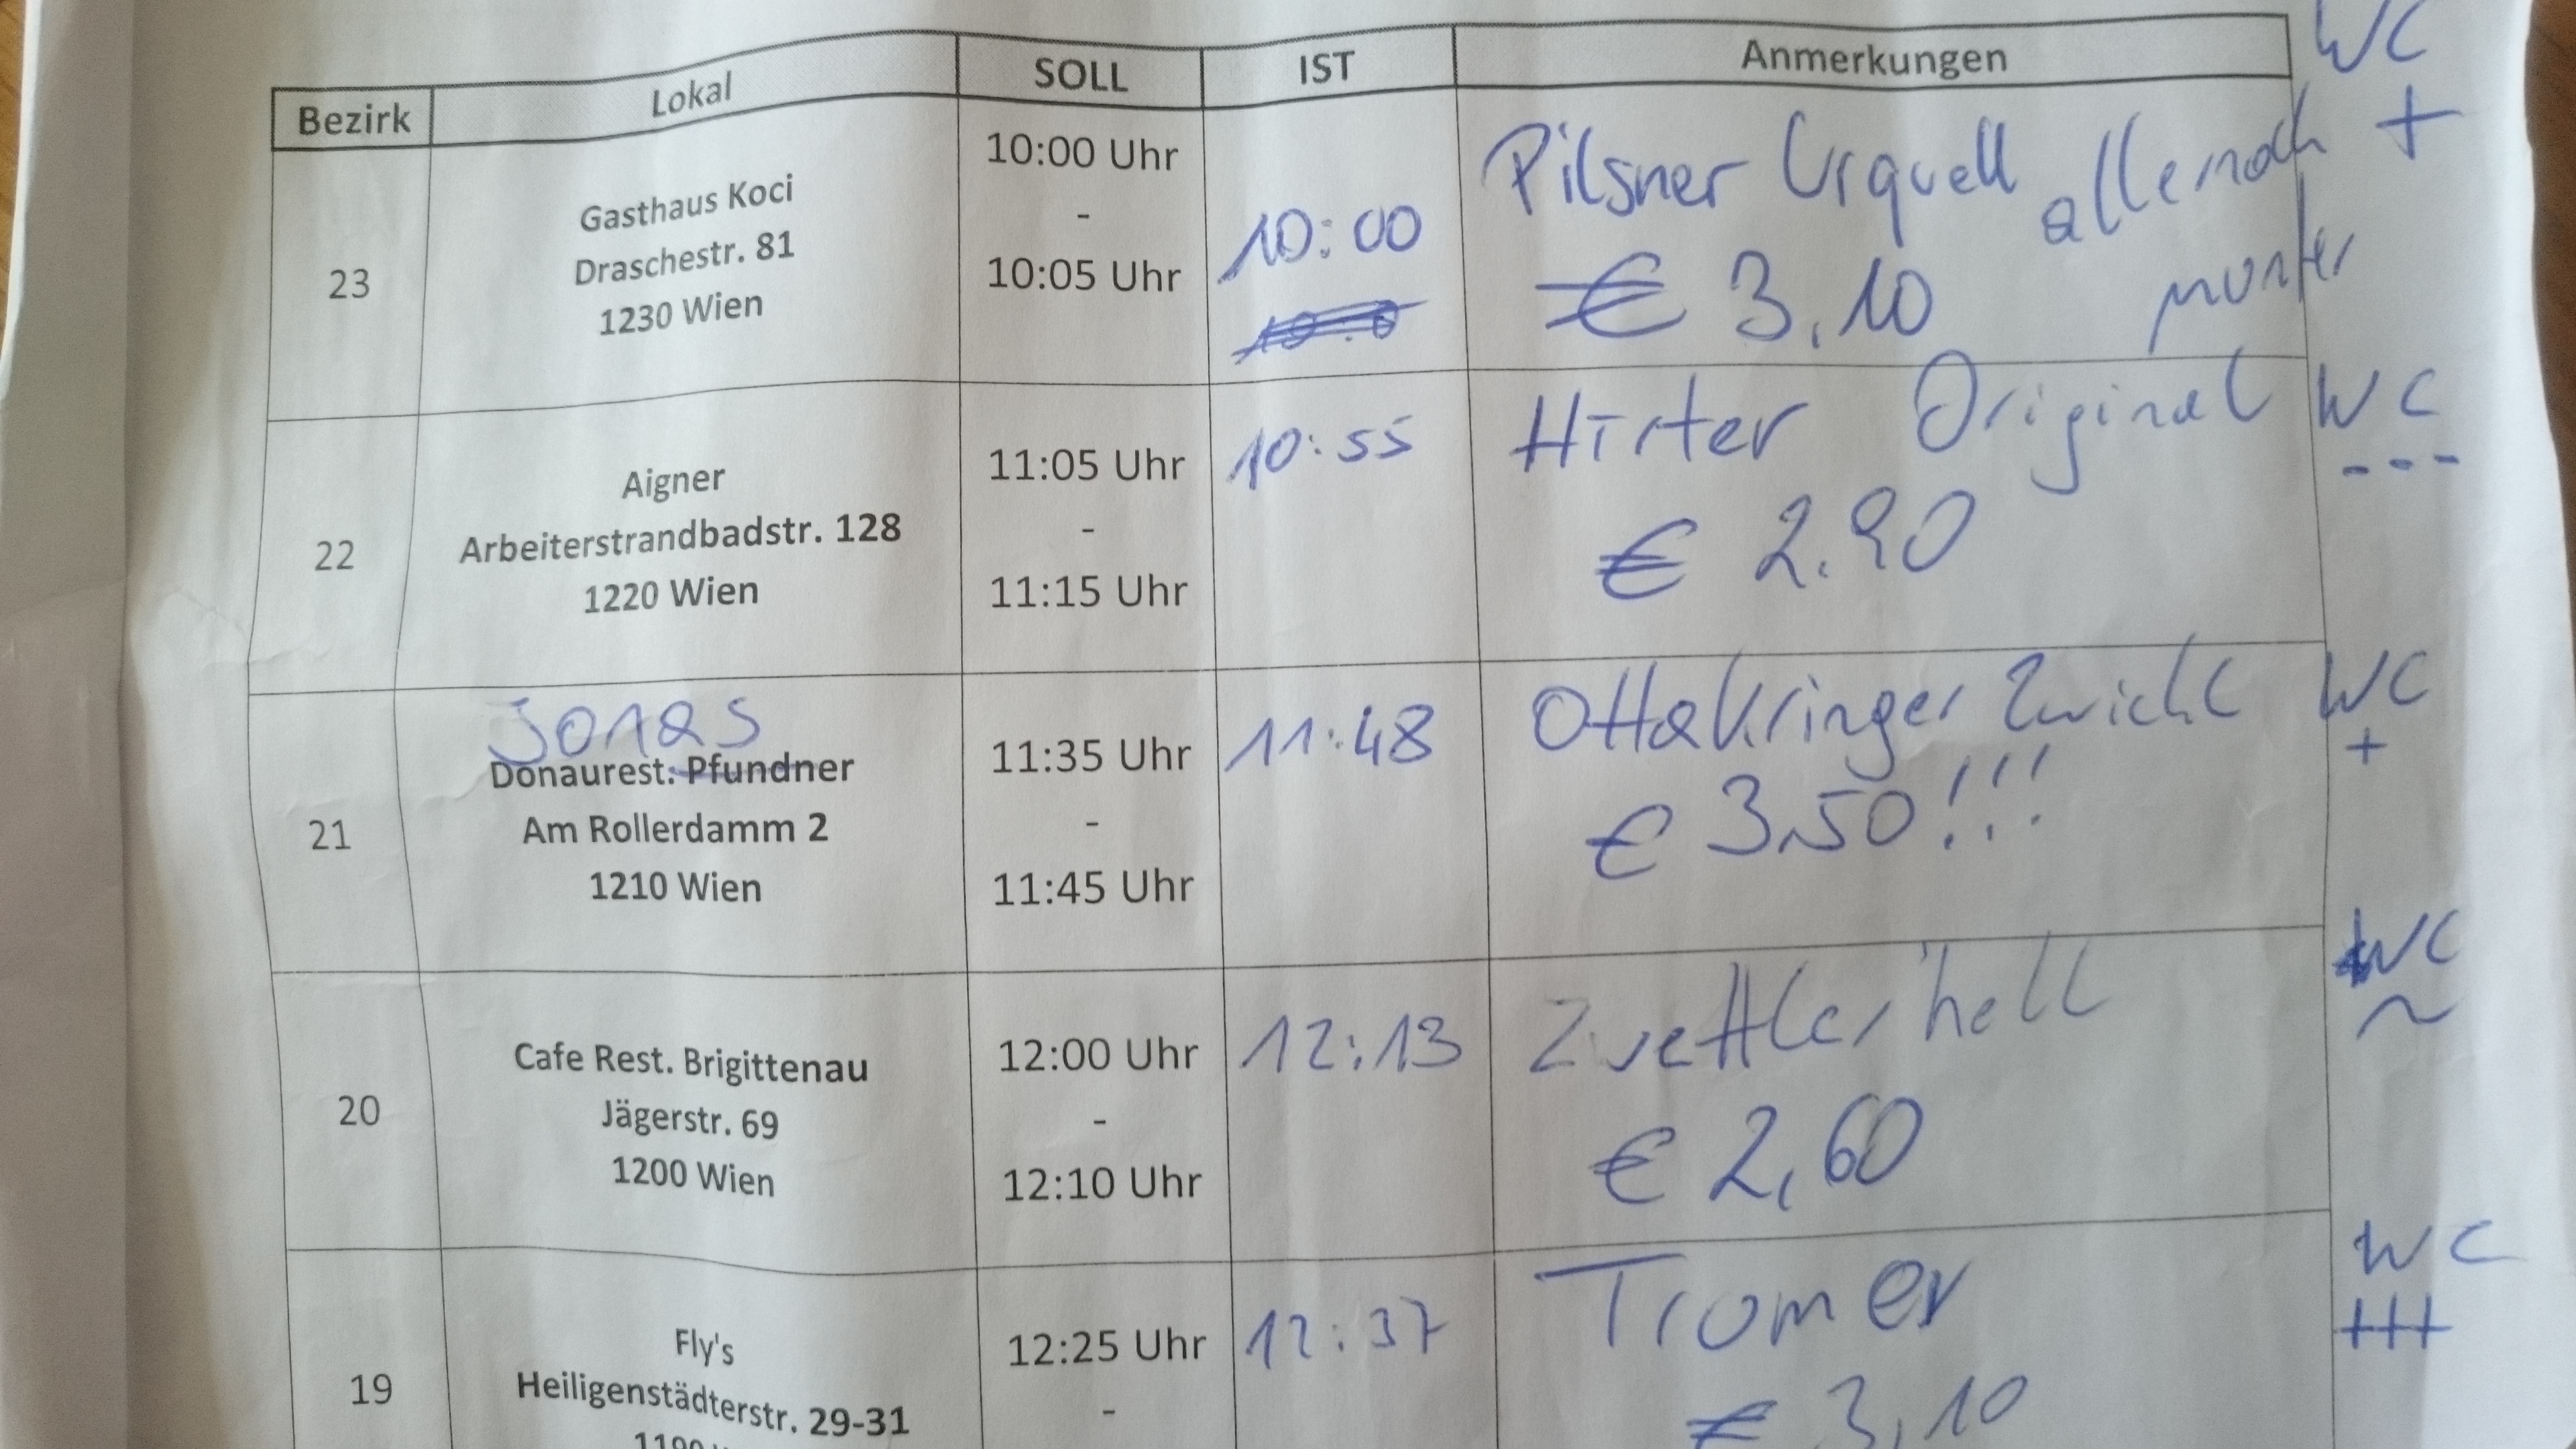 Bezirk Lokal SOLL IST Anmerkungen WC
23
Gasthaus Koci
Draschestr. 81
1230 Wien
10:00 Uhr
-
10:05 Uhr
10:00
Pilsner Urquell alle noch
munter
€ 3,10
+
22
Aigner
Arbeiterstrandbadstr. 128
1220 Wien
11:05 Uhr
-
11:15 Uhr
10:55
Hirter Original
€ 2.90
WC
---
21
Jonas
Donaurest. Pfundner
Am Rollerdamm 2
1210 Wien
11:35 Uhr
-
11:45 Uhr
11:48
Ottakringer Zwickl
€ 3,50!!!
WC
+
20
Cafe Rest. Brigittenau
Jägerstr. 69
1200 Wien
12:00 Uhr
-
12:10 Uhr
12:13
Zwettler hell
€ 2,60
WC
~
19
Fly's
Heiligenstädterstr. 29-31
12:25 Uhr
-
12:37
Trumer
€ 3,10
WC
+++